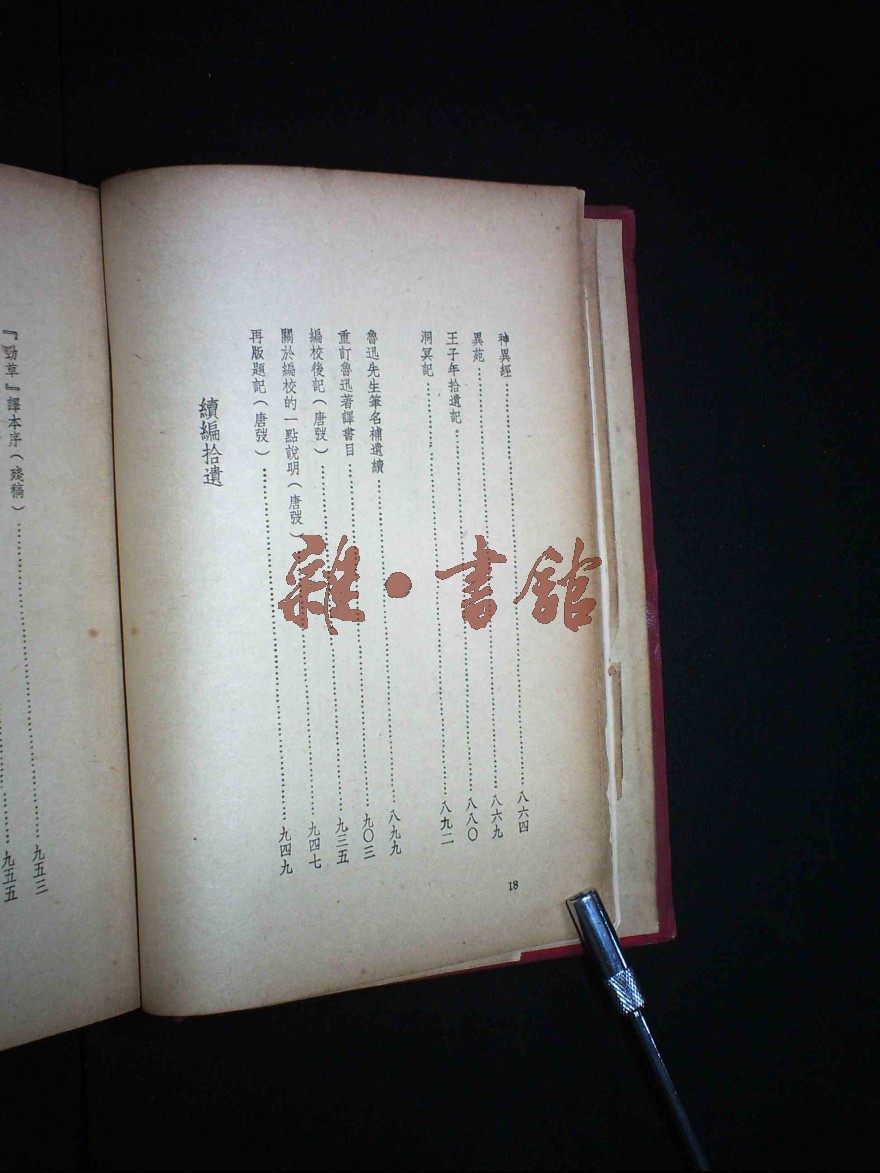 神異經……八六四
異苑……八六九
王子年拾遺記……八八〇
洞冥記……八九二
魯迅先生筆名補遺續……八九九
重訂魯迅著譯書目……九〇三
編校後記（唐弢）……九三五
關於編校的一點說明（唐弢）……九四七
再版題記（唐弢）……九四九
續編拾遺
18
『勁草』譯本序（殘稿）……九五三
……九五五
雜·書館